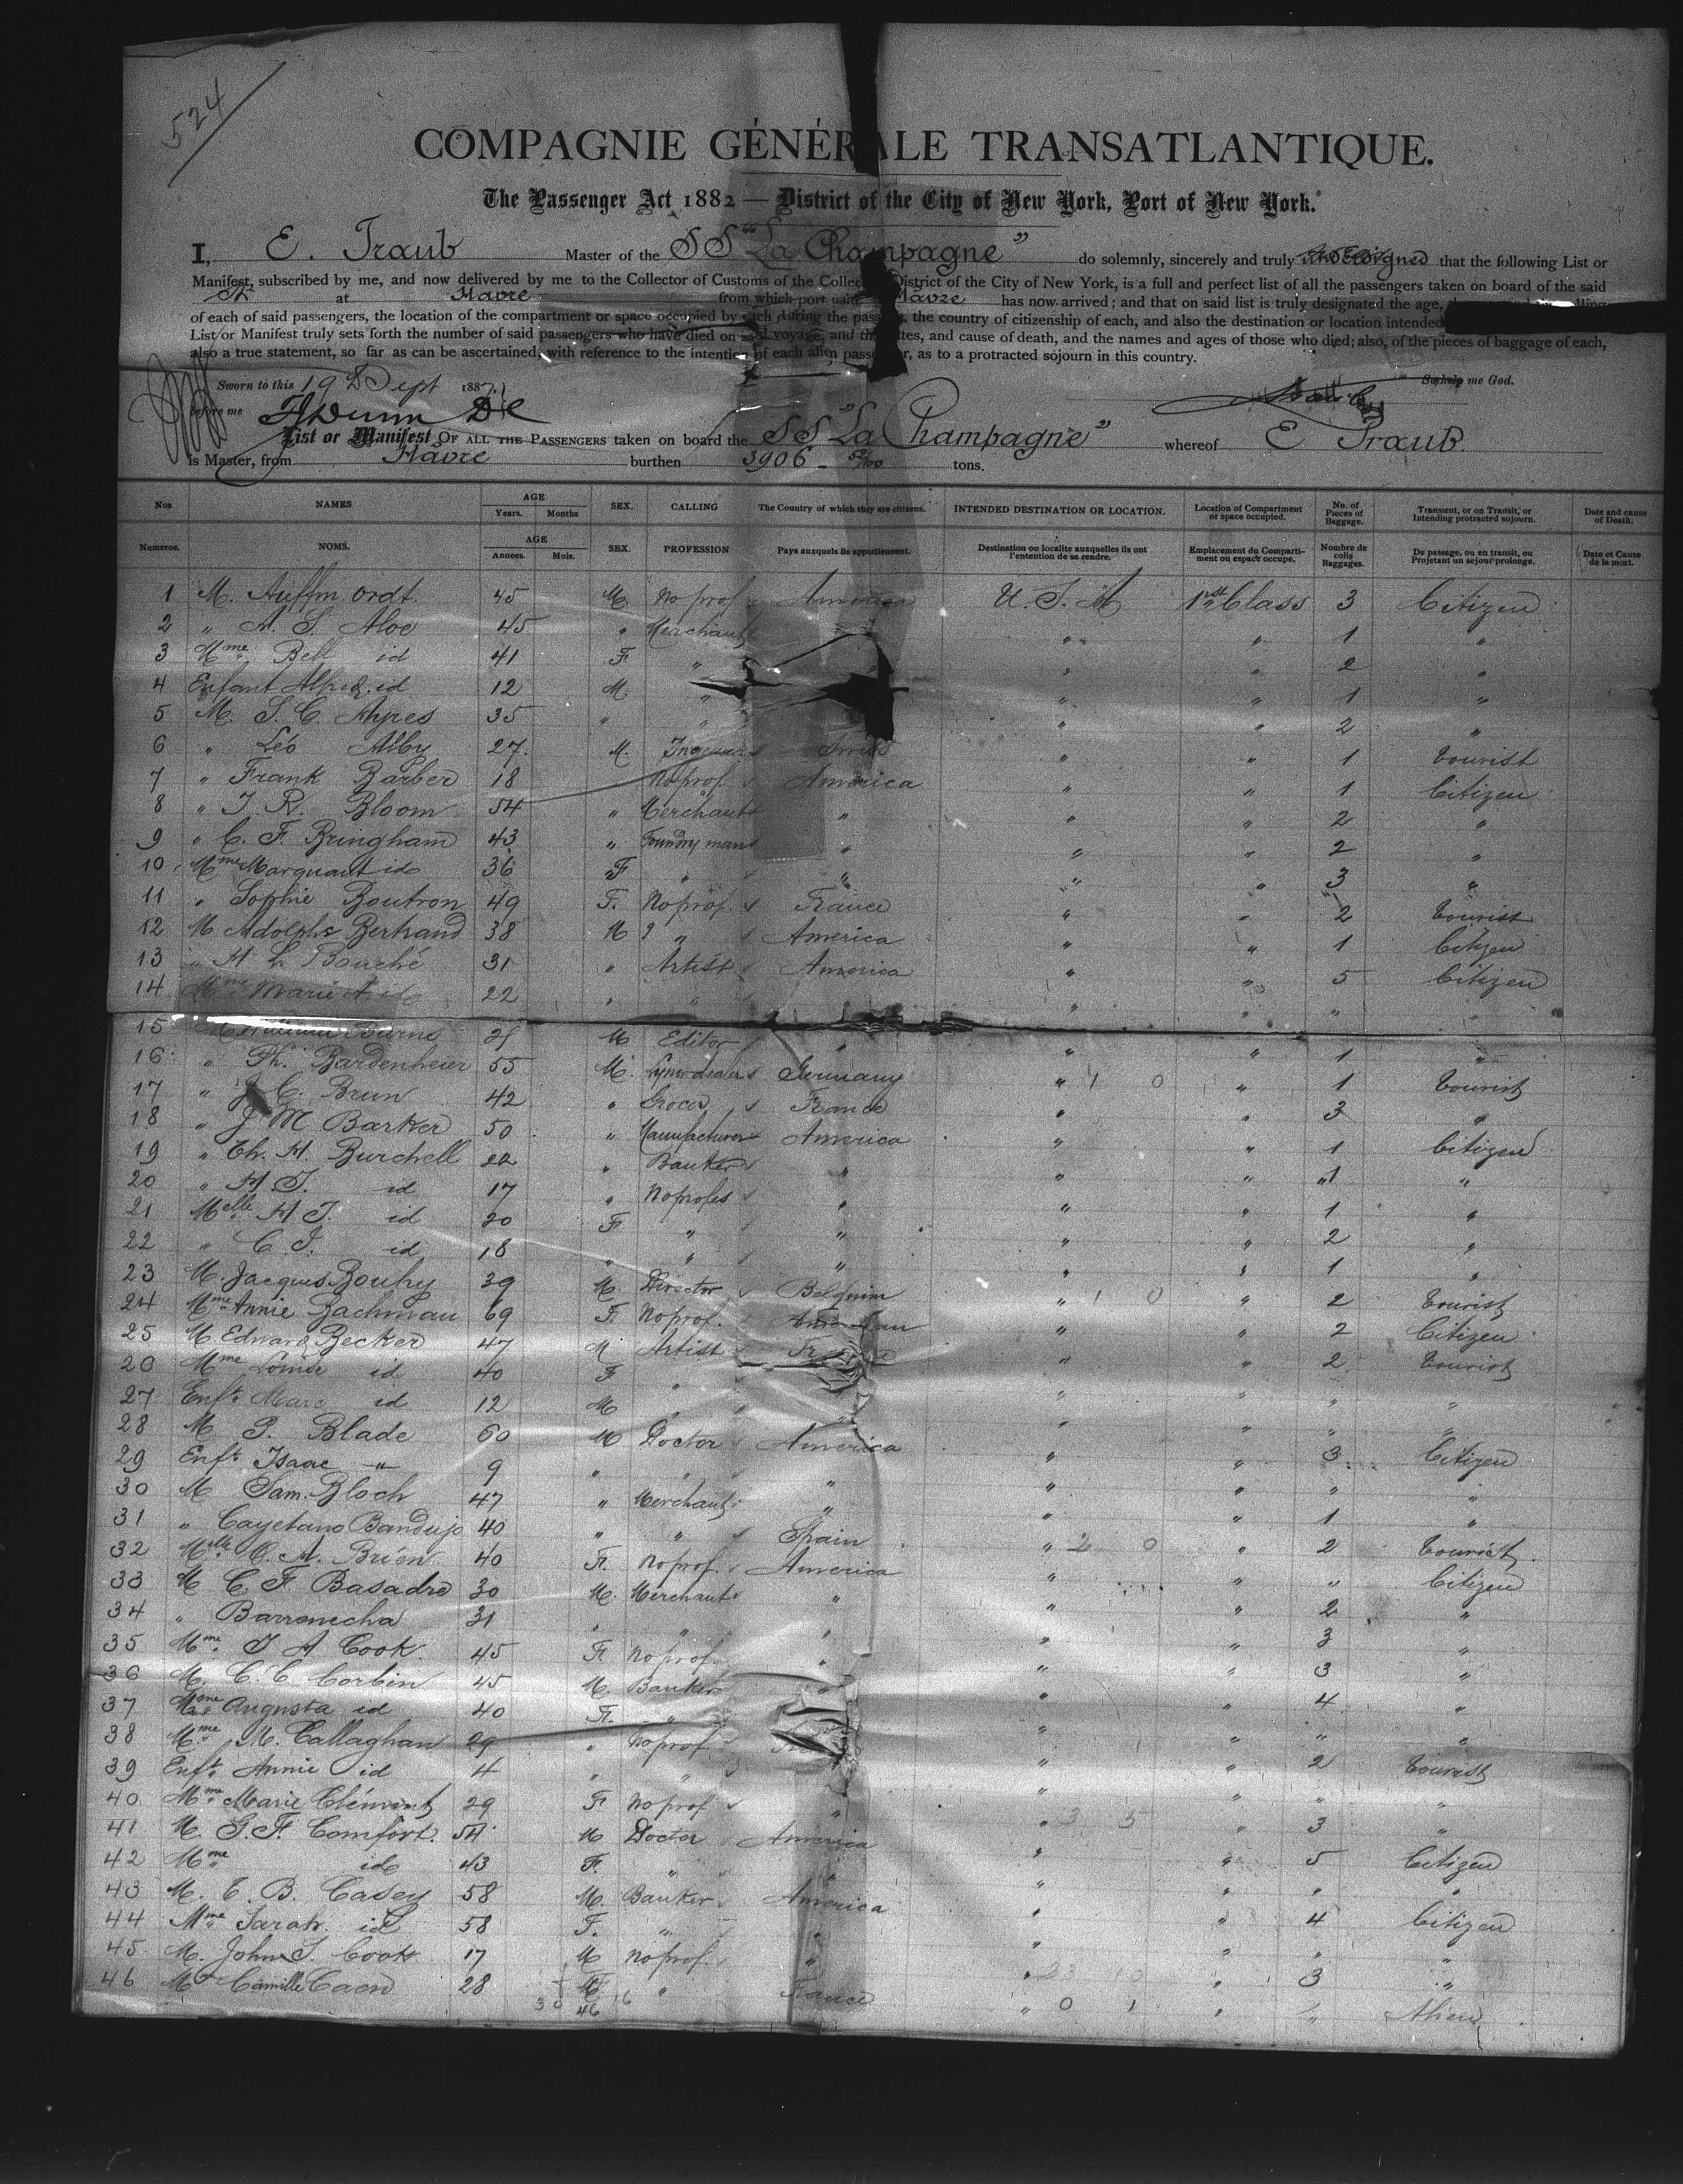 524
COMPAGNIE GÉNÉRALE TRANSATLANTIQUE.
The Passenger Act 1882 — District of the City of New York, Port of New York.
I, E. Traub Master of the SS "La Champagne" do solemnly, sincerely and truly that the following List or
Manifest, subscribed by me, and now delivered by me to the Collector of Customs of the Collec District of the City of New York, is a full and perfect list of all the passengers taken on board of the said
at Havre from which port said Havre has now arrived; and that on said list is truly designated the age,
of each of said passengers, the location of the compartment or space occupied by each during the passage, the country of citizenship of each, and also the destination or location intended
List or Manifest truly sets forth the number of said passengers who have died on said voyage, and the dates, and cause of death, and the names and ages of those who died; also, of the pieces of baggage of each,
also a true statement, so far as can be ascertained, with reference to the intention of each alien passenger, as to a protracted sojourn in this country.
Sworn to this 19 Sept 1887 So help me God.
before me
List or Manifest OF ALL THE PASSENGERS taken on board the SS "La Champagne" whereof E Traub
is Master, from Havre burthen 3906 - 52/100 tons.
Nos NAMES AGE Years. Months SEX. CALLING The Country of which they are citizens. INTENDED DESTINATION OR LOCATION. Location of Compartment or space occupied. No. of Pieces of Baggage. Transient, or on Transit, or Intending protracted sojourn. Date and cause of Death.
Numeros. NOMS. AGE Annees. Mois. SEX. PROFESSION Pays auxquels ils appartiennent. Destination ou localite auxquelles ils ont l'entention de se rendre. Emplacement du Comparti-ment ou espace occupe. Nombre de colis Baggages. De passage, ou en transit, ou Projetant un sejour prolonge. Date et Cause de la mort.
1 M. Auffm ordt 45 M no prof America U.S.A 1st Class 3 Citizen
2 " A. S. Aloe 45 " Merchant " " 1 "
3 Mme Bell id 41 F " " " 2 "
4 Enfant Alfred id 12 M. " " " 1 "
5 M. S. C. Ayres 35 " " " " 2 "
6 " Léo Alby 27 M. Swiss " " 1 tourist
7 " Frank Barber 18 No prof. America " " 1 Citizen
8 " J. R. Bloom 54 " Merchant " " " 2 "
9 " C. F. Bringham 43 " Foundry man " " " 2 "
10 Mme Marquant id 36 F " " " " 3 "
11 " Sophie Boutron 49 F. No prof. France " " 2 tourist
12 M Adolphe Bertrand 38 M " America " " 1 Citizen
13 " H L Bouché 31 " Artist America " " 5 Citizen
14 Mme Marie A id 22 " " " " " "
15 M William Burns M Editor " " " 1 "
16 " Ph. Bardenheier 55 M. Germany " 1 0 " 1 tourist
17 " J. C. Brun 42 " Grocer France " " 3 "
18 " J M Barker 50 " Manufacturer America " " 1 Citizen
19 " Ch. H. Burchell 22 " Banker " " " 1 "
20 " H J. id 17 " No profes " " " 1 "
21 Melle H J. id 20 F " " " " 2 "
22 " C. J. id 18 " " " " " 1 "
23 M. Jacques Bouhy 39 M. Director Belgium " 1 0 " 2 tourist
24 Mme Annie Bachman 69 F. No prof. American " " 2 Citizen
25 M. Edward Becker 47 M Artist " " 2 tourist
26 Mme Louise id 40 F " " " " "
27 Enft. Marc id 12 M " " " " " "
28 M P. Blade 60 M Doctor America " " 3 Citizen
29 Enft. Isaac " 9 " " " " " " "
30 M Sam. Bloch 47 " Merchant " " " 1 "
31 " Cayetano Bandujo 40 " " Spain " 2 0 " 2 tourist
32 Melle C. A. Brien 40 F. No prof. America " " " Citizen
33 M C. F. Basadre 30 M. Merchant " " " 2 "
34 " Barronecha 31 " " " " " 3 "
35 Mme J A Cook 45 F No prof. " " " 3 "
36 M. C. C. Corbin 45 M. Banker " " " 4 "
37 Mme Augusta id 40 F. " " " " "
38 Mme M. Callaghan 29 " No prof. " " 2 tourist
39 Enft. Annie id 4 " " " " " "
40 Mme Marie Clément 29 F No prof " " 3 5 " 3 "
41 M. G. F. Comfort 54 M Doctor America " " 5 Citizen
42 Mme id 43 F. " " " " " "
43 M. E. B. Casey 58 M. Banker America " " 4 Citizen
44 Mme Sarah id 58 F. " " " " " "
45 M. John S. Cook 17 M No prof. " " " 3 "
46 M Camille Caen 28 M " France " 0 1 " " Alien
30 46 16